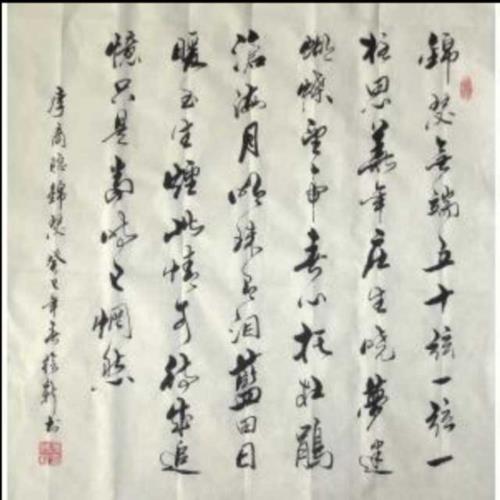 錦瑟無端五十弦一弦一
柱思華年庄生曉夢迷
蝴蝶望帝春心托杜鵑
滄海月明珠有泪藍田日
暖玉生煙此情可待成追
憶只是當時已惘然
李商隱錦瑟癸巳年春書